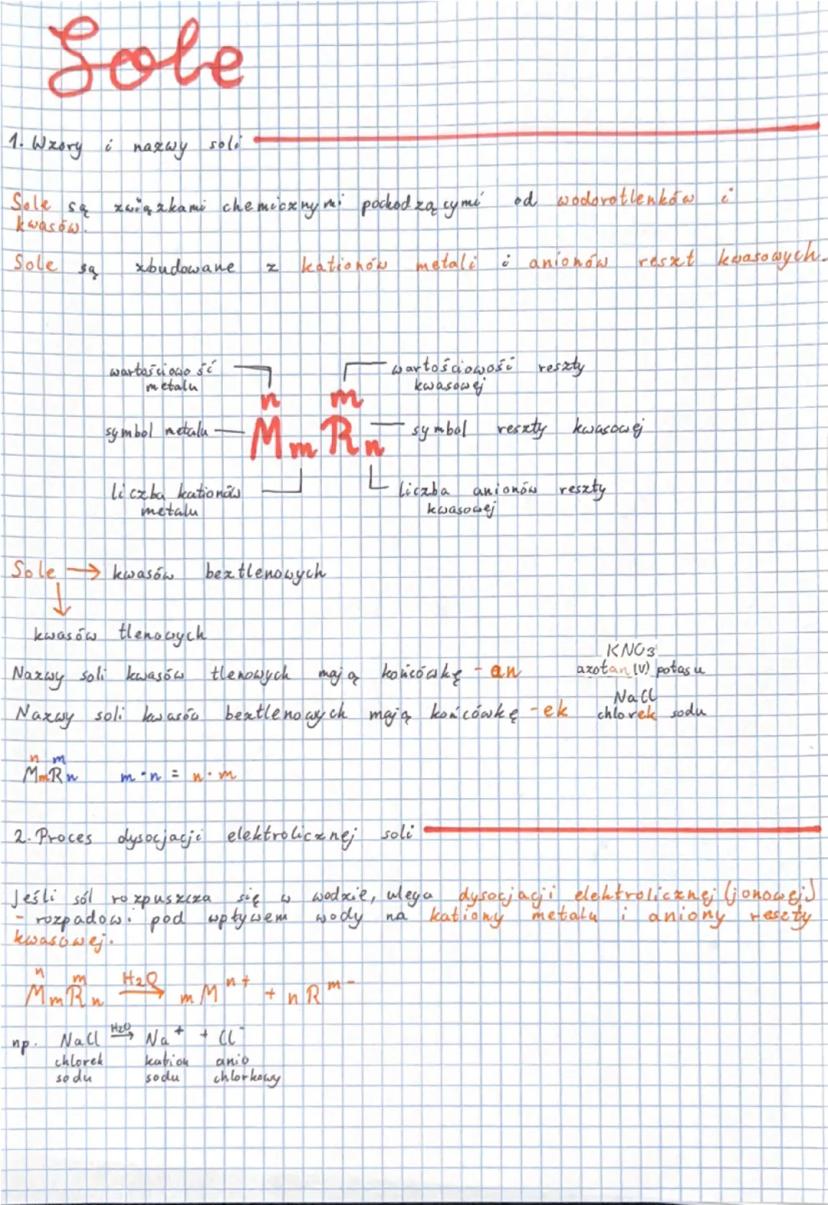 Sole
1. Wzory i nazwy soli
Sole są związkami chemicznymi pochodzącymi od wodorotlenków i
kwasów.
Sole są zbudowane z kationów metali i anionów reszt kwasowych.
wartościowość
metalu
wartościowość reszty
kwasowej
n m
symbol metalu
MmRn
symbol reszty kwasowej
liczba kationów
metalu
liczba anionów reszty
kwasowej
Sole → kwasów beztlenowych
↓
kwasów tlenowych
KNO3
Nazwy soli kwasów tlenowych mają końcówkę -an azotan (V) potasu
NaCl
Nazwy soli kwasów beztlenowych mają końcówkę -ek chlorek sodu
n m
MmRn m·n = n·m
2. Proces dysocjacji elektrolicznej soli
Jeśli sól rozpuszcza się w wodzie, ulega dysocjacji elektrolicznej (jonowej)
- rozpadowi pod wpływem wody na kationy metalu i aniony reszty
kwasowej.
n m H2O
MmRn → mMⁿ⁺ + nRᵐ⁻
np. NaCl H2O→ Na⁺ + Cl⁻
chlorek kation anio
sodu sodu chlorkowy